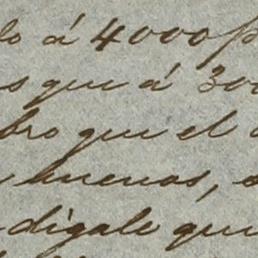 lo á 4000 p
s que á 300
bro que el
buenos,
digale que